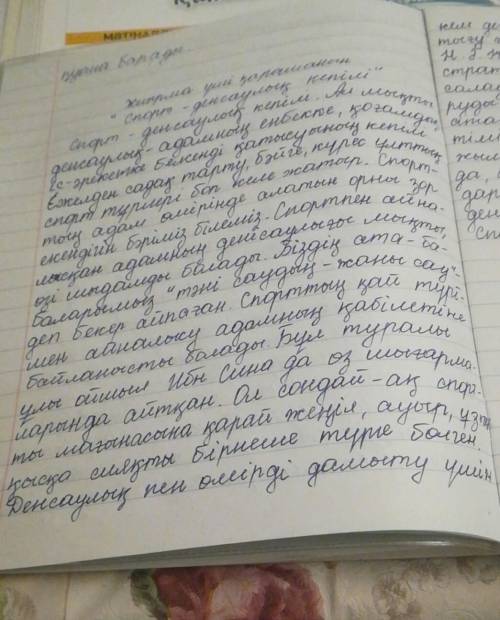 МӘТІНАЛДЫ
қуана барады.
Жиырма үші қарашаның
"Спорт - денсаулық кепілі"
Спорт - денсаулық кепілі. Ал мықты
денсаулық - адамның еңбекке, қоғамдық
іс-әрекетке белсенді қатысуының кепілі
Ежелден садақ тарту, бәйге, күрес ұлттық
спорт түрлері боп келе жатыр. Спорт-
тың адам өмірінде алатын орны зор
екендігін бәріміз білеміз. Спортпен айна-
лысқан адамның денісаулығы мықты,
өзі шыдамды болады. Біздің ата-ба-
баларымыз "тәні саудың - жаны сау"
деп бекер айтпаған. Спорттың қай түрі-
мен айналысу адамның қабілетіне
байланысты болады. Бұл туралы
ұлы ойшыл Ибн Сина да өз шығарма-
ларында айтқан. Ол сондай-ақ спор-
ты мағынасына қарай жеңіл, ауыр, ұзақ
қысқа сияқты бірнеше түрге бөлген.
Денсаулық пен өмірді дамыту үшін
кем де
тығу
Н. Г. Н
страт
сала
руды
ата
тім
жыл
да,
дар
ден
Сп